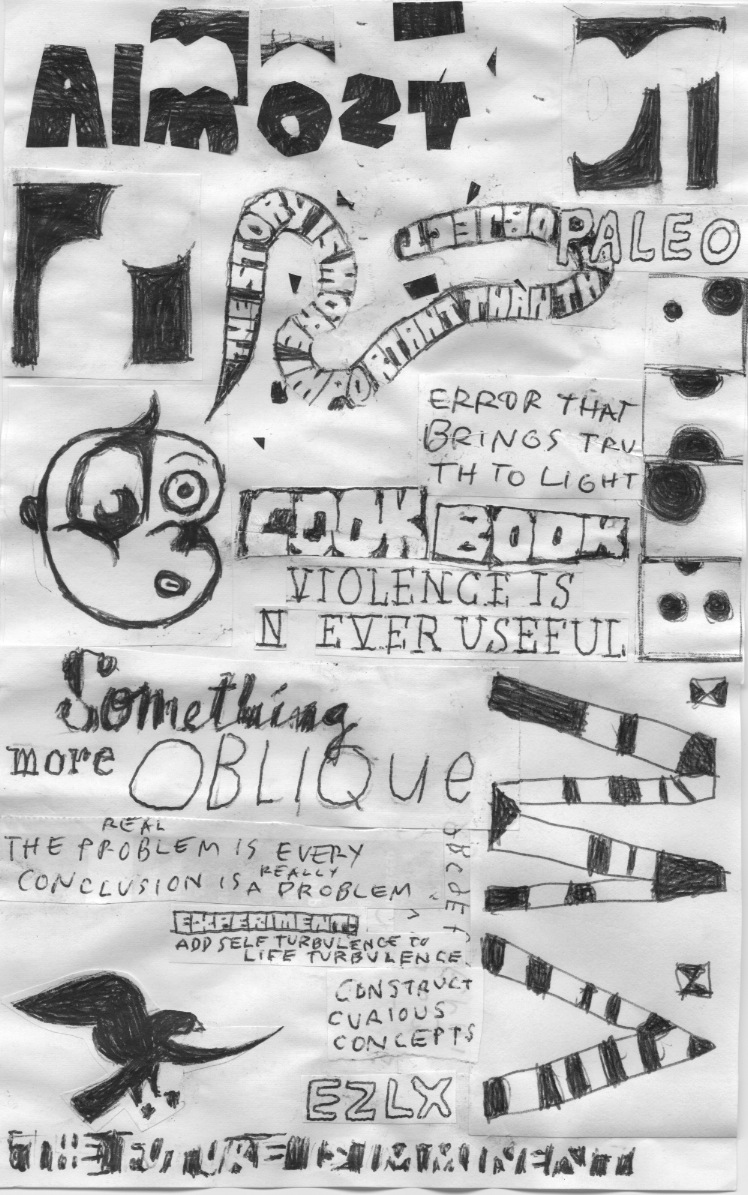 ALMOST
THE STORY IS MORE IMPORTANT THAN TH OBJECT
PALEO
ERROR THAT
BRINGS TRU
TH TO LIGHT
COOK BOOK
VIOLENCE IS
N EVER USEFUL
Something
more OBLIQUe
REAL
THE PROBLEM IS EVERY
REALLY
CONCLUSION IS A PROBLEM
abcdef
EXPERIMENT:
ADD SELF TURBULENCE TO
LIFE TURBULENCE.
CONSTRUCT
CURIOUS
CONCEPTS
EZLX
THE FUTURE IS IMMINENT